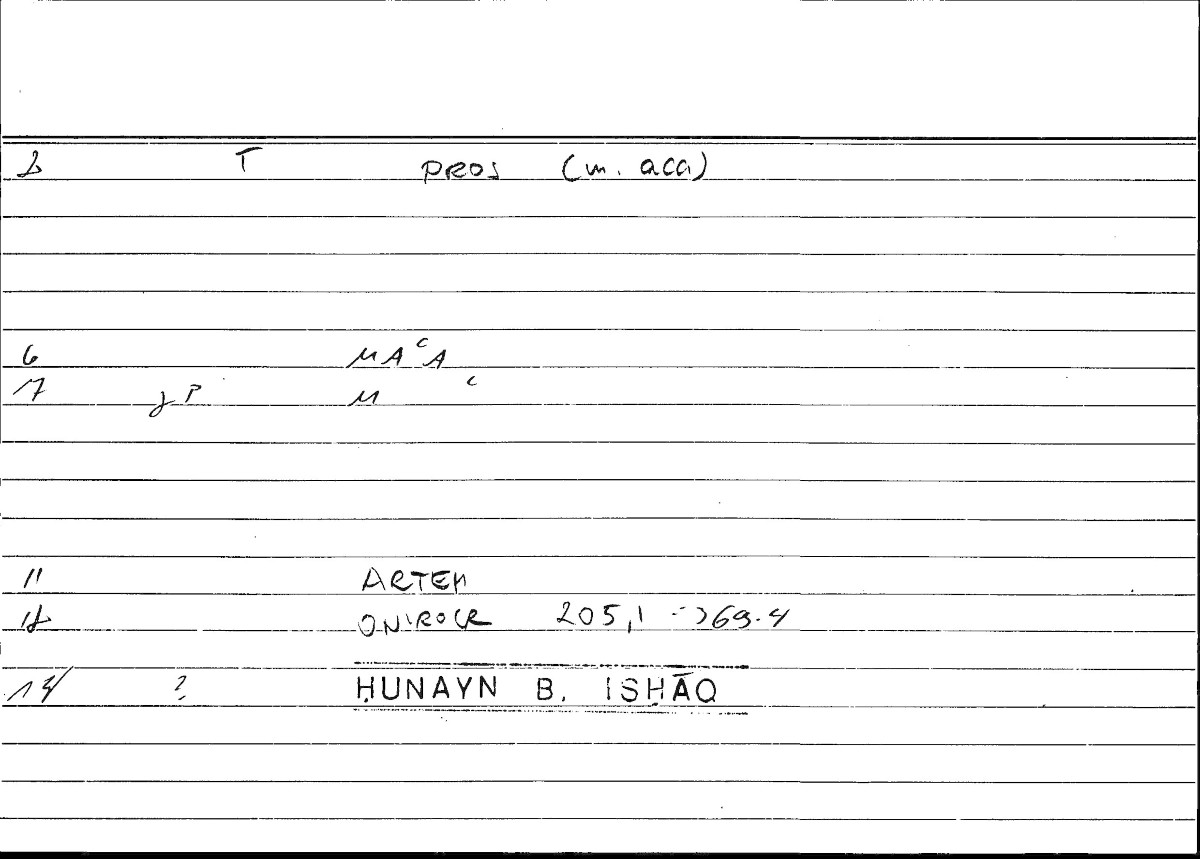 2 T PROS (m. acc)
6 MAᶜA
7 gP M ᶜ
11 ARTEM
12 ONIROCR 205,1 -> 69.4
14 ? ḤUNAYN B. ISḤĀQ